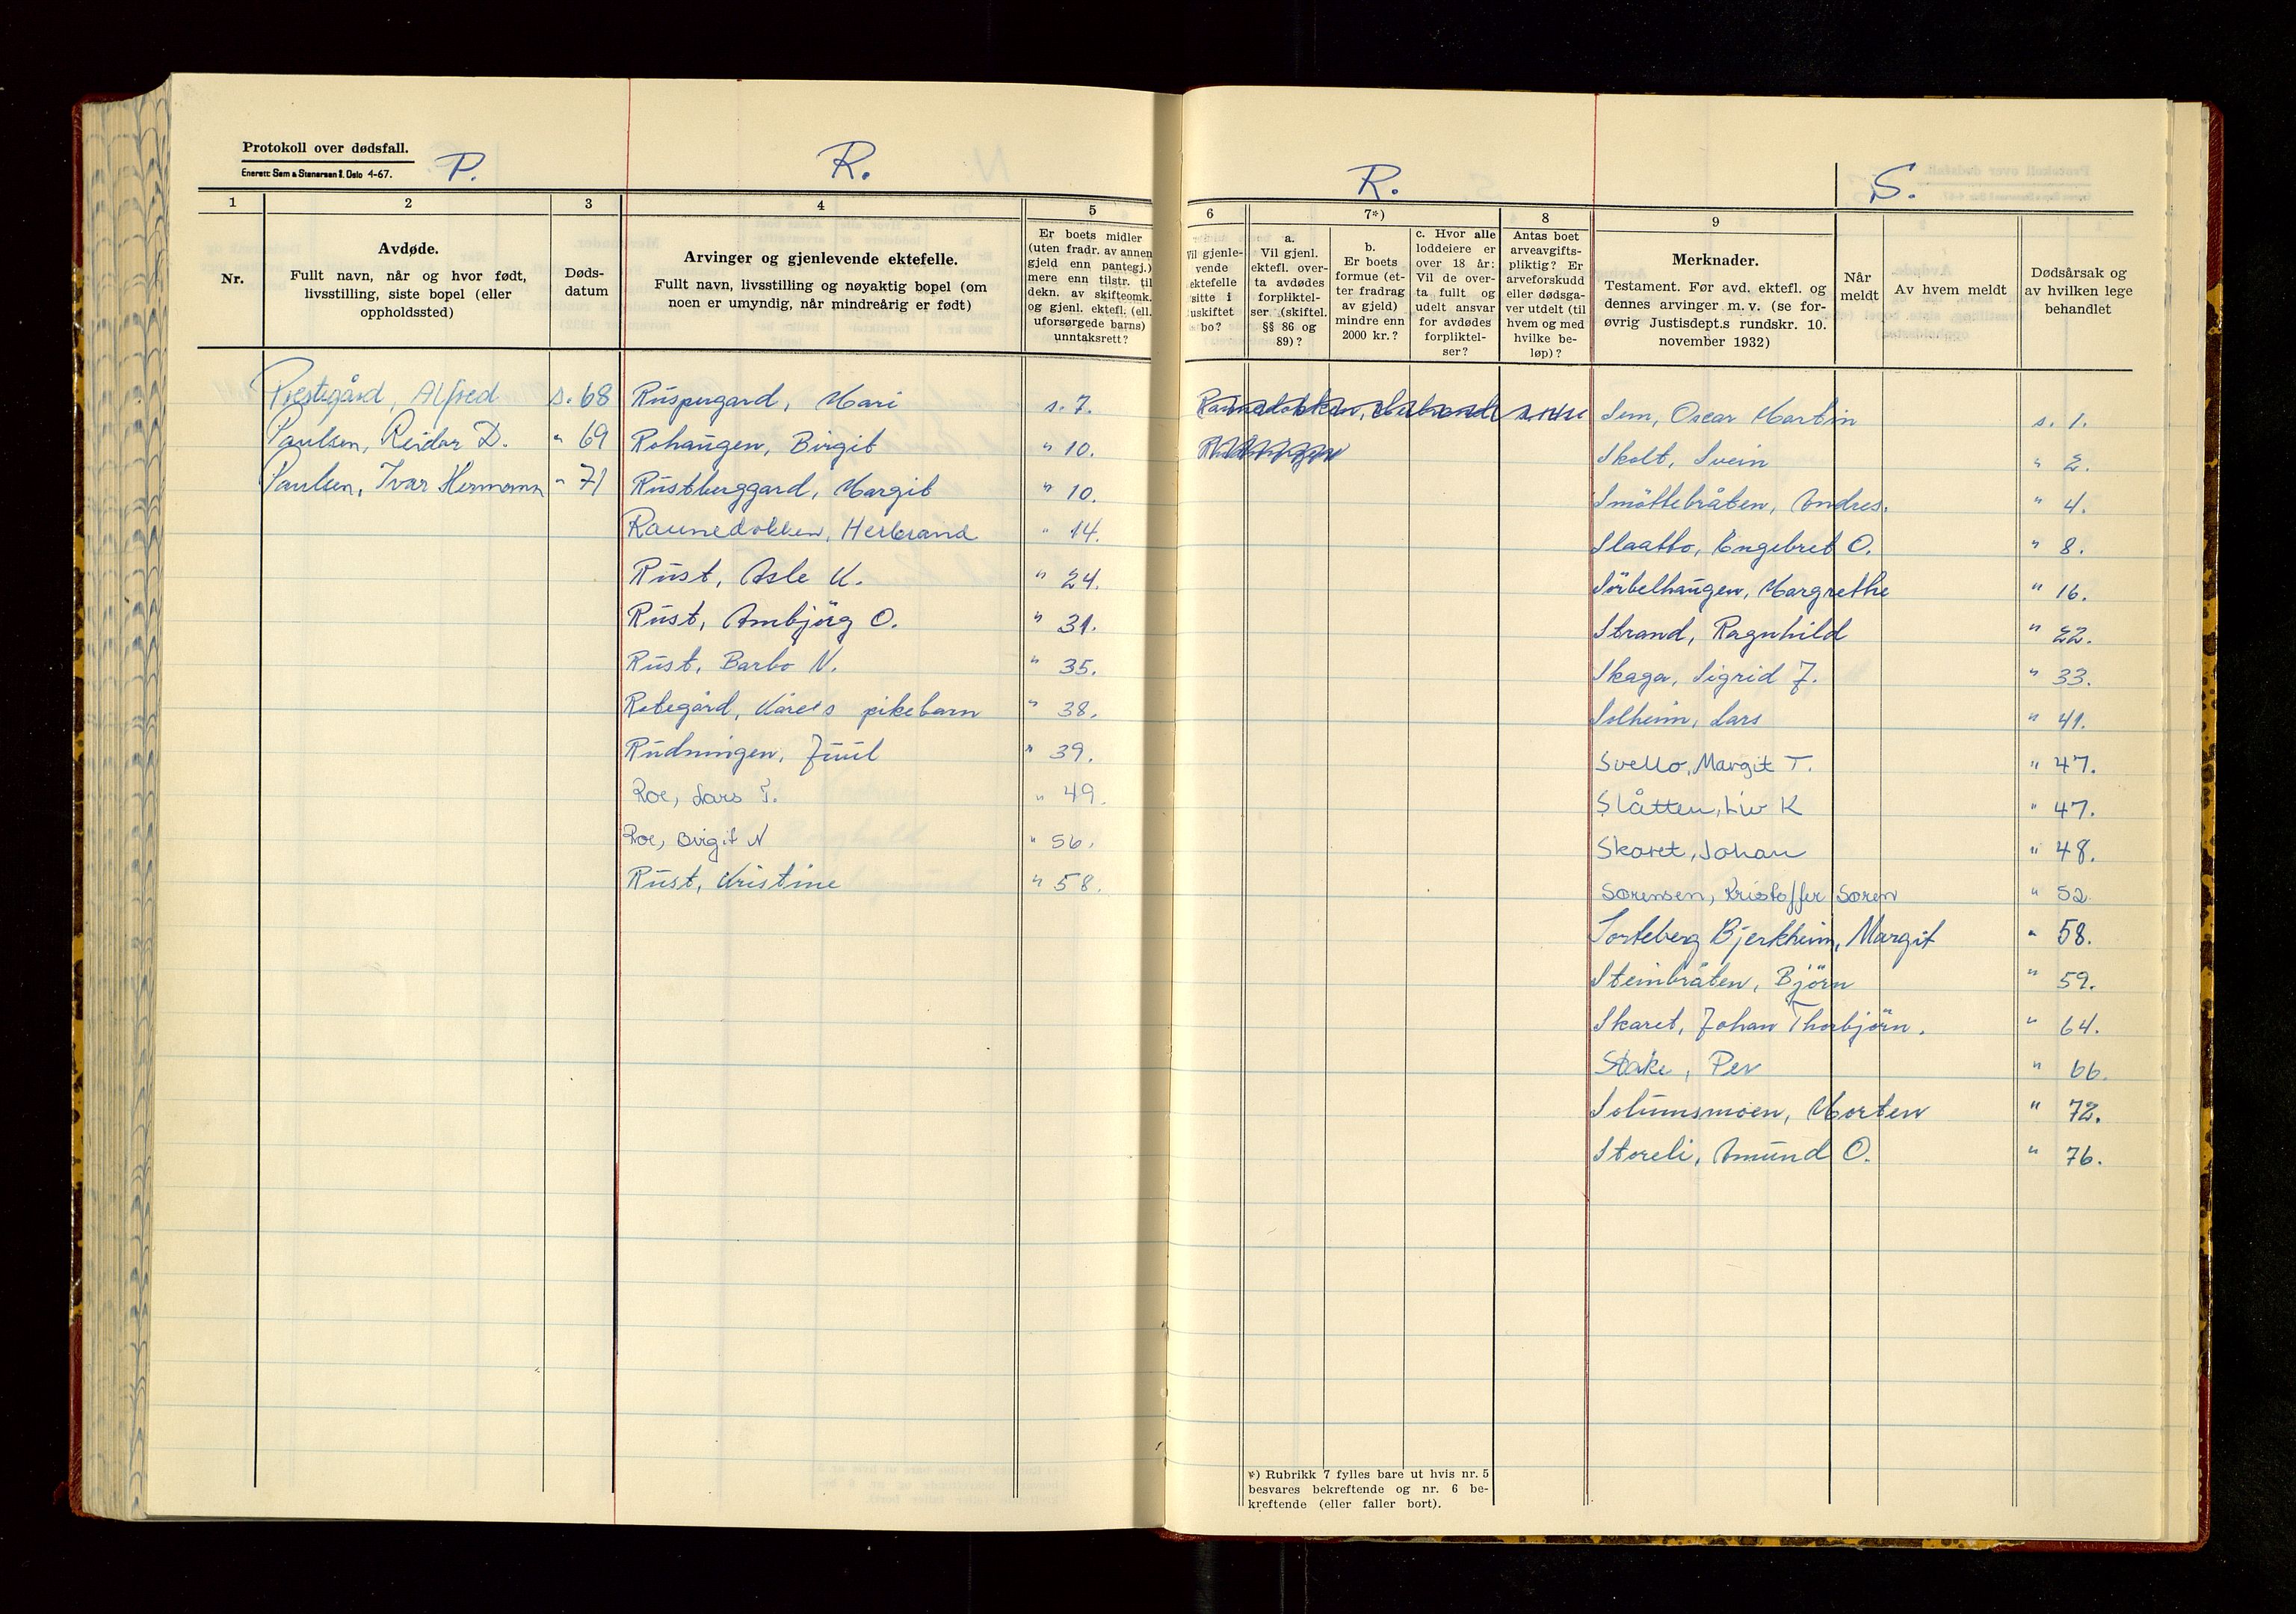 Protokoll over dødsfall.
Enerett: Sem & Stenersen A/S. Oslo 4-67.
P.
R.
1
2
3
4
5
Nr.
Avdøde.
Fullt navn, når og hvor født,
livsstilling, siste bopel (eller
oppholdssted)
Døds-
datum
Arvinger og gjenlevende ektefelle.
Fullt navn, livsstilling og nøyaktig bopel (om
noen er umyndig, når mindreårig er født)
Er boets midler
(uten fradr. av annen
gjeld enn pantegj.)
mere enn tilstr. til
dekn. av skifteomk.
og gjenl. ektefl. (ell.
uforsørgede barns)
unntaksrett?
Prestegård, Alfred s. 68
Paulsen, Reidar D. " 69
Paulsen, Ivar Hermann " 71
Ruspergard, Mari s. 7.
Rohaugen, Birgit " 10.
Rustberggard, Margit " 10.
Raunedokken, Herbrand " 14.
Rust, Asle K. " 24.
Rust, Ambjörg O. " 31.
Rust, Barbo N. " 35.
Rebegård, Kåres pikebarn " 38.
Rudningen, Juul " 39.
Roe, Lars T. " 49.
Roe, Birgit N " 56.
Rust, Kristine " 58.
R.
S.
6
7*)
8
9
Vil gjenle-
vende
ektefelle
sitte i
uskiftet
bo?
a.
Vil gjenl.
ektefl. over-
ta avdødes
forpliktel-
ser (skiftel.
§§ 86 og
89)?
b.
Er boets
formue (et-
ter fradrag
av gjeld)
mindre enn
2000 kr.?
c. Hvor alle
loddeiere er
over 18 år:
Vil de over-
ta fullt og
udelt ansvar
for avdødes
forpliktel-
ser?
Antas boet
arveavgifts-
pliktig? Er
arveforskudd
eller dødsga-
ver utdelt (til
hvem og med
hvilke be-
løp)?
Merknader.
Testament. Før avd. ektefl. og
dennes arvinger m. v. (se for-
øvrig Justisdept.s rundskr. 10.
november 1932)
Når
meldt
Av hvem meldt
Dødsårsak og
av hvilken lege
behandlet
Raunedokken, Herbrand
Sem, Oscar Martin s. 1.
Skolt, Svein " 2.
Smöttebråten, Andres. " 4.
Slaatto, Engebret O. " 8.
Sörbelhaugen, Margrethe " 16.
Strand, Ragnhild " 22.
Skaga, Sigrid J. " 33.
Solheim, Lars " 41.
Svello, Margit T. " 47.
Slåtten, Liv K " 47.
Skaret, Johan " 48.
Sørensen, Kristoffer Søren " 52.
Sorteberg Bjerkheim, Margit " 58.
Steinbråten, Björn " 59.
Skaret, Johan Thorbjörn. " 64.
Stake, Per " 66.
Solumsmoen, Morten " 72.
Storeli, Amund O. " 76.
*) Rubrikk 7 fylles bare ut hvis nr. 5
besvares bekreftende og nr. 6 be-
kreftende (eller faller bort).